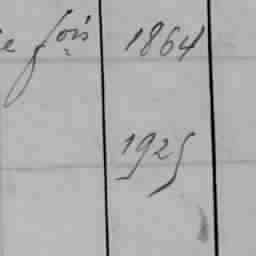 e fois 1864
1925